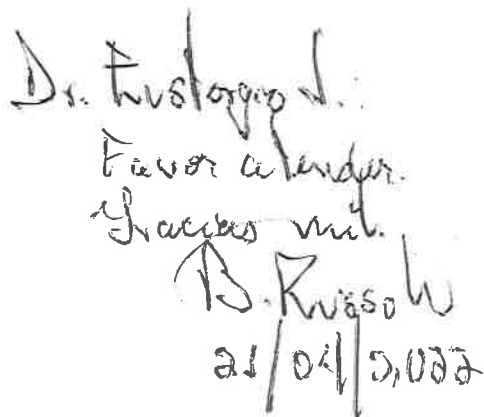 Dr. Eustorgio J.
Favor atender.
Gracias mil.
B. Russo W
21/04/2,022